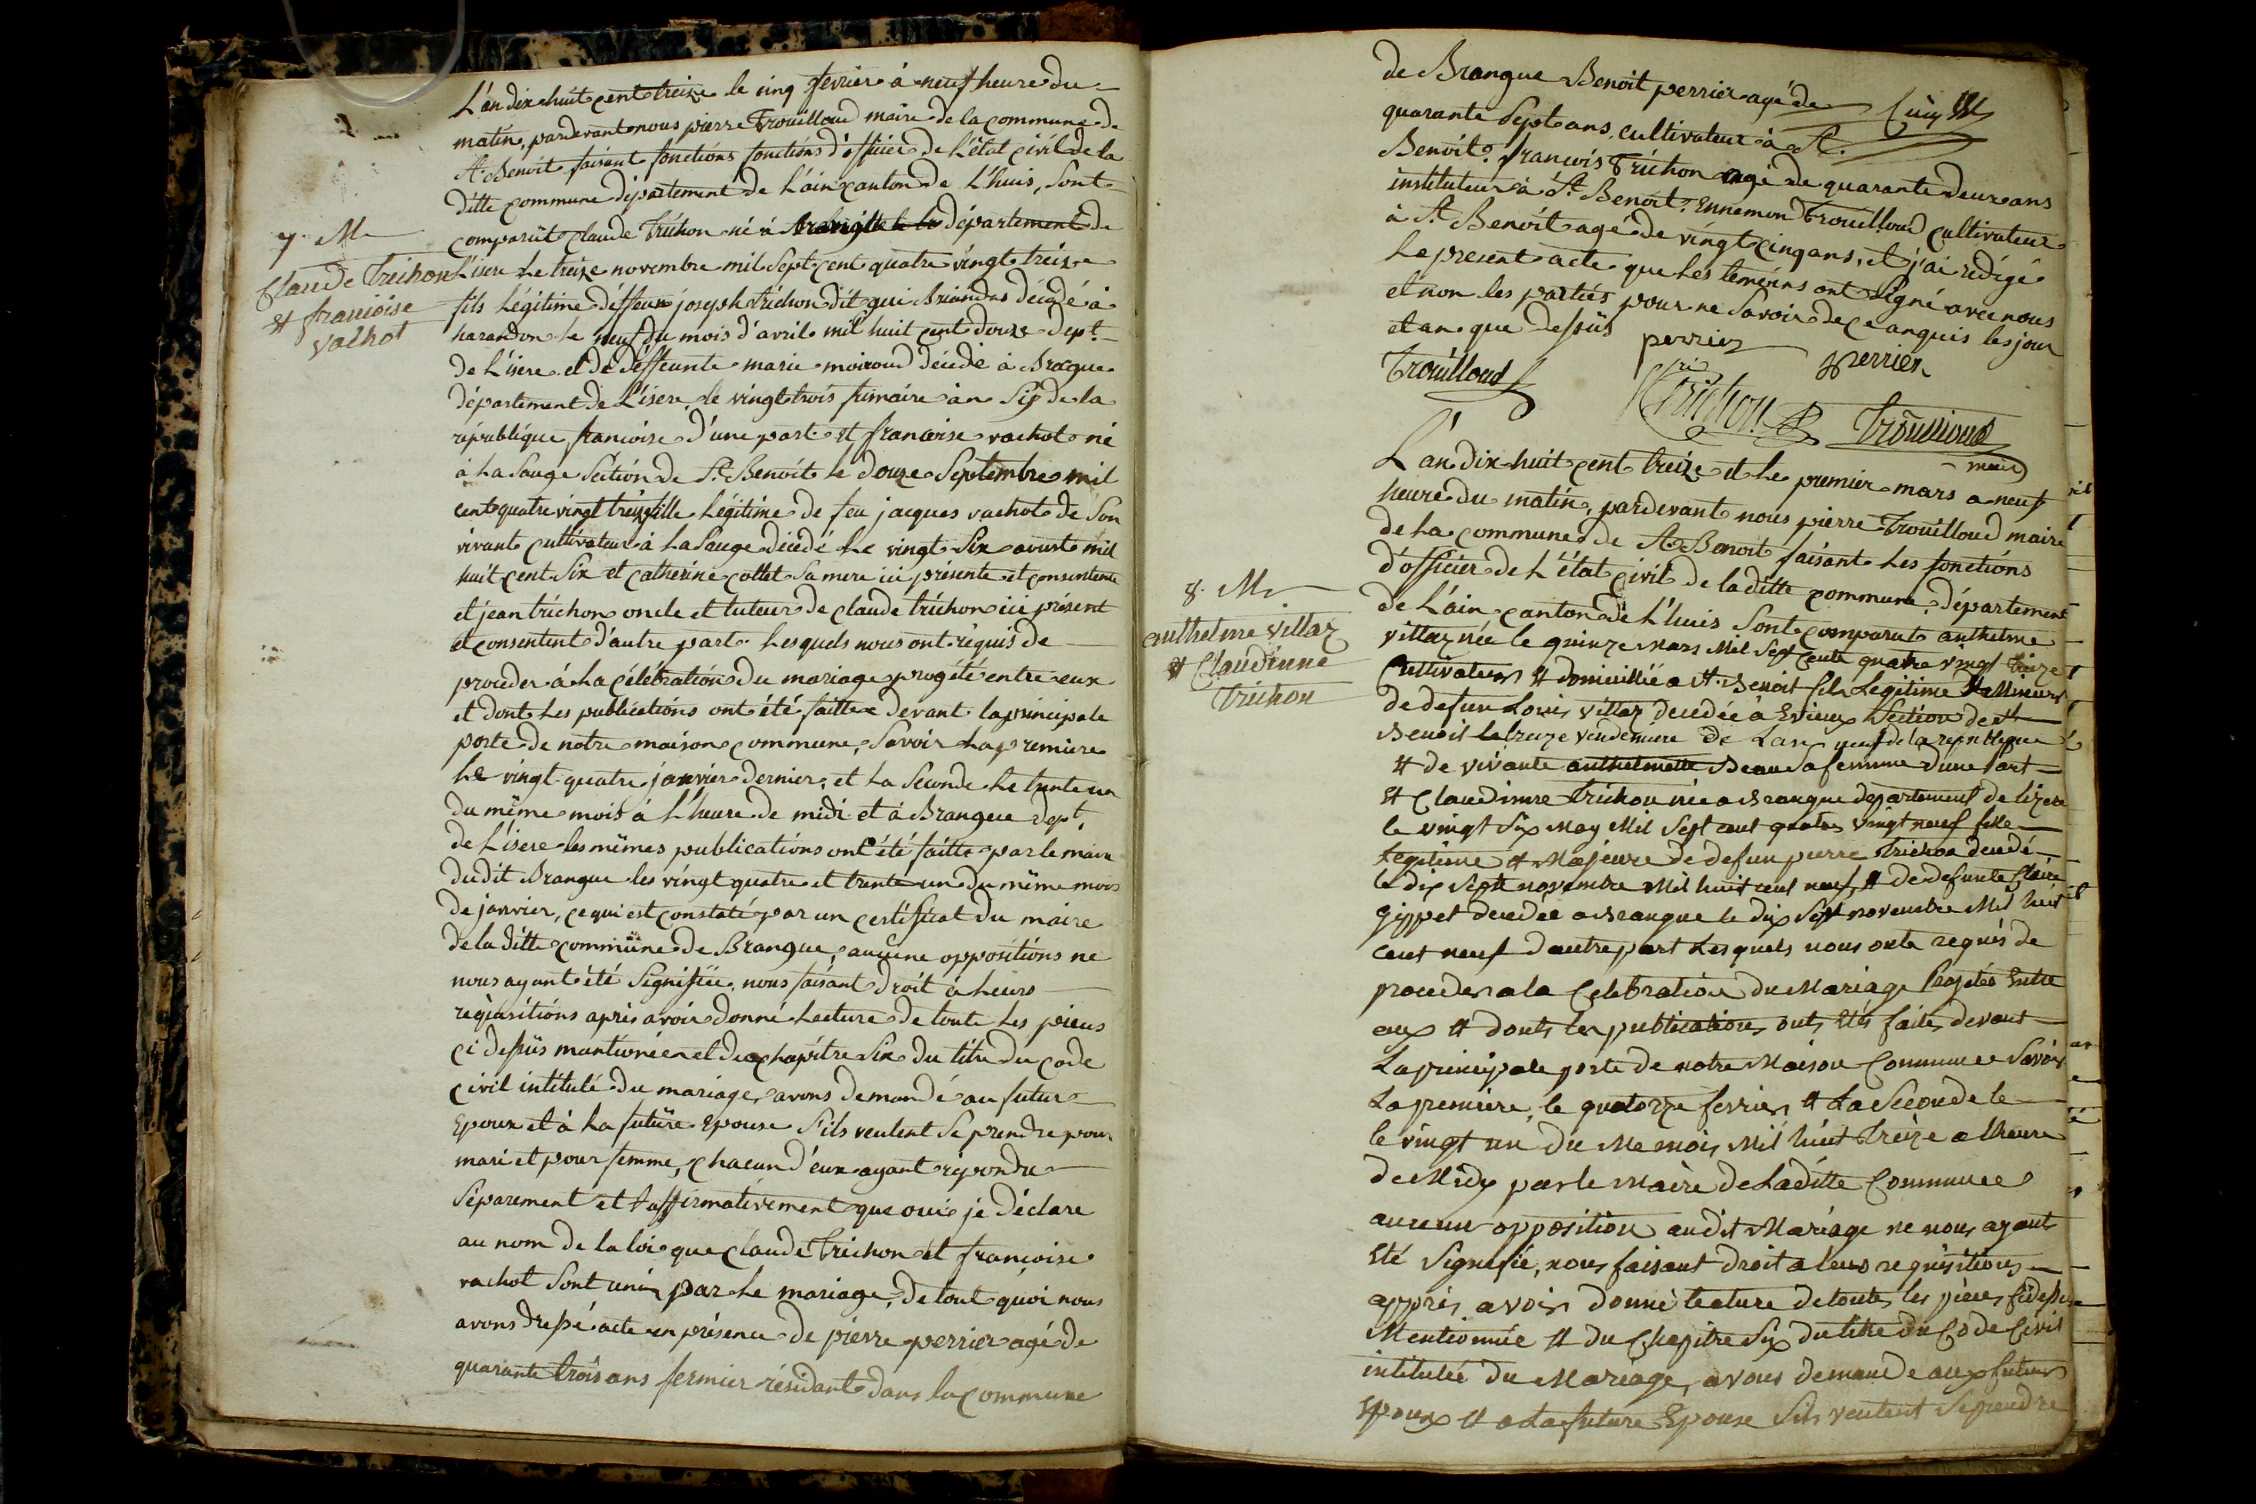 L'an dix huit cent treize le cinq fevrier à neuf heure du
matin, pardevant nous pierre Trouilloud maire de la commune de
St. Benoit faisant fonctions fonctions d'officier de L'état civil de la
ditte commune département de L'ain canton de L'huis, sont
comparût Claude Trichon né à département de
L'isere Le treize novembre mil sept cent quatre vingt treize
fils Légitime déffeux joseph trichon dit décédé à
le neuf du mois d'avril mil huit cent douze dept.
de L'isere et de déffeunte marie décédé à Brangue
département de L'isere, le vingt trois frimaire an six de la
république francoise d'une part et francoise vachot né
à La Sauge Séction de St. Benoit le douze Septembre mil
cent quatre vingt treize fille Légitime de feu jacques vachot de son
vivant cultivateur à La Sauge décédé Le vingt Six avust mil
huit cent Six et catherine collet sa mere ici présente et consentente
et jean trichon oncle et tuteur de claude trichon ici présent
et consentent d'autre part. Lesquels nous ont réquis de
proceder à La célébration du mariage progété entre eux
et dont Les publications ont été faittes devant la principale
porte de notre maison commune, Savoir La premiere
Le vingt quatre janvier dernier, et La Seconde Le trente un
du même mois à L'heure de midi et à Brangue dept.
de L'isere les mêmes publications ont été faitte par le maire
dudit Brangue les vingt quatre et trente un du même mois
de janvier, ce qui est constaté par un certificat du maire
de la ditte commune de Brangue, aucune oppositions ne
nous ayant été Signifiée, nous faisant droit à Leurs
réquisitions après avoir donné Lecture de toute Les pieces
ci dessus mantionéen et du chapitre Six du titre du code
civil intitulé du mariage, avons demandé au futur
Epoux et à La future Epouse S'ils veulent Se prendre pour
mari et pour femme, chacun d'eux ayant répondu
Séparement et affirmativement que oui je déclare
au nom de la loi que Claude Trichon et francoise
vachot Sont unis par Le mariage, de tout quoi nous
avons dressé acte en présence de pierre perrier agé de
quarante trois ans fermier résidant dans la commune
7. M
Claude Trichon
et francoise
vachot
de Brangue Benoit perrier agé de
quarante Sept ans, cultivateur à St.
Benoit. francois Trichon agé de quarante deux ans
instituteur à St. Benoit. Ennemon Trouilloud cultivateur
à St. Benoit agé de vingt cinq ans, et j'ai rédigé
Le present acte que Les temoins ont Signé avec nous
et non les parties pour ne Savoir de ce anquis les jour
et an que dessus
perrier
perrier
Trouilloud
Trichon
Trouilloud
maire
L'an dix huit cent treize et Le premier mars a neuf
heure du matin, pardevant nous pierre Trouilloud maire
de La commune de St. Benoit faisant Les fonctions
d'officier de L'état civil de la ditte commune, département
de L'ain canton de L'huis Sont comparut anthelme
villaz née le quinze Mars Mil Sept cents quatre vingt treize
Cultivateur et domicillié a St. Benoit fils Legitime et Mineur
de defun Louis villaz decedée à Evieux Section de St
Benoit le treze vendemiere de Lan neuf de la republique
et de vivante anthelmette Beau Sa femme d'une part
et Claudinne Trichon née a Brangue departement de lizere
le vingt Six May Mil Sept cent quatre vingt neuf fille
Legitime et Majeure de defun pierre Trichon decedé
le dix Sept novembre Mil huit cent neuf, et de defunte Claire
gippet decedée a Brangue le dix Sept novembre Mil huit
cent neuf dautre part Lesquels nous onts requis de
proceder a la Celebration du Mariage Progetés Entre
eux et donts les publications onts Etés faites devant
La principale porte de notre Maison Commune Savoir
La premiere, le quatorze fevrier et La Seconde le
le vingt un du Me mois Mil huit Treize a lheure
de Midy par le Maire de La ditte Commune
aucune opposition audit Mariage ne nous ayant
Eté Signifié, nous faisant droit a leurs requisitions
apprés avoir donné lecture de toutes les pieces cidessus
Mentionnée et du Chapitre Six du titre du Code Civil
intitulée du Mariage, avons demandé aux futur
Epoux et a La future Epouse Sils veulent Seprendre
8. M
anthelme villaz
et Claudinne
Trichon